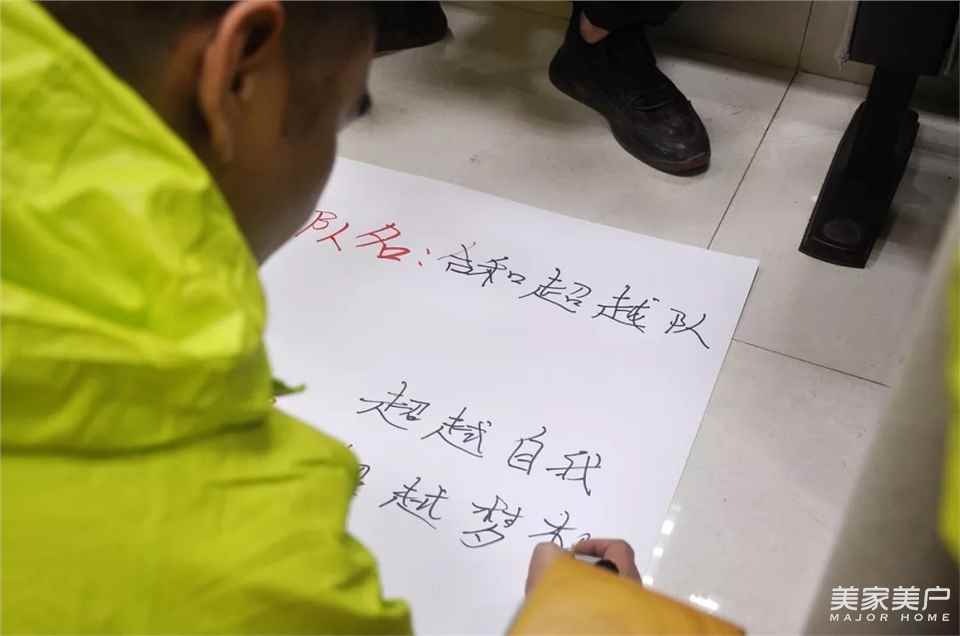 队名：合和超越队
超越自我
超越梦想
美家美户
MAJOR HOME